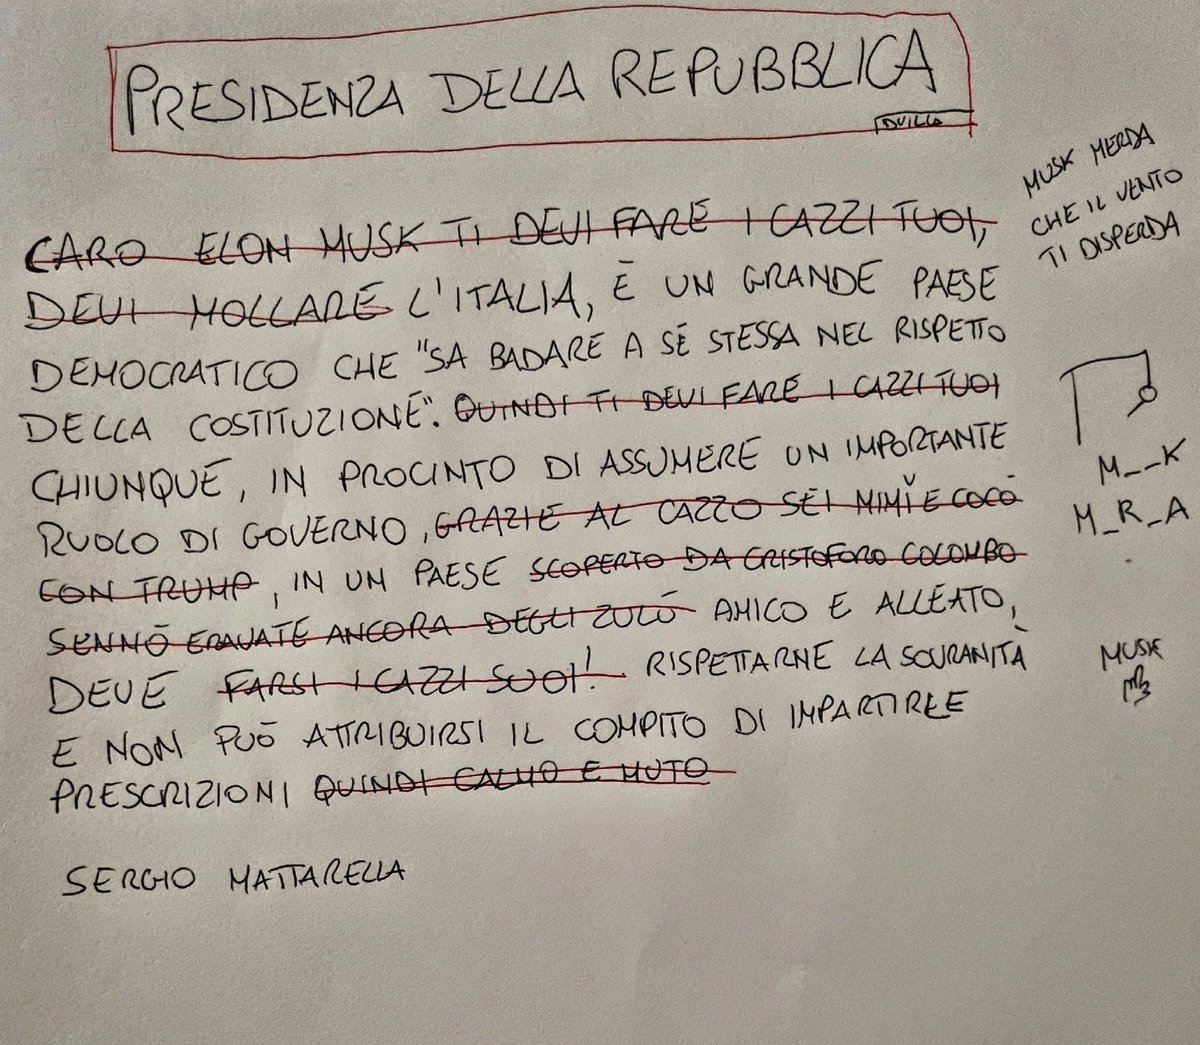 PRESIDENZA DELLA REPUBBLICA
DUILLO
CARO ELON MUSK TI DEVI FARE I CAZZI TUOI,
DEVI MOLLARE L'ITALIA, È UN GRANDE PAESE
DEMOCRATICO CHE "SA BADARE A SÉ STESSA NEL RISPETTO
DELLA COSTITUZIONE". QUINDI TI DEVI FARE I CAZZI TUOI
CHIUNQUE, IN PROCINTO DI ASSUMERE UN IMPORTANTE
RUOLO DI GOVERNO, GRAZIE AL CAZZO SEI MIMÌ E COCÒ
CON TRUMP, IN UN PAESE SCOPERTO DA CRISTOFORO COLOMBO
SENNÒ ERAVATE ANCORA DEGLI ZULÙ AMICO E ALLEATO,
DEVE FARSI I CAZZI SUOI! RISPETTARNE LA SOVRANITÀ
E NON PUÒ ATTRIBUIRSI IL COMPITO DI IMPARTIRLE
PRESCRIZIONI QUINDI CALMO E MUTO
SERGIO MATTARELLA
MUSK MERDA
CHE IL VENTO
TI DISPERDA
M__K
M_R_A
MUSK